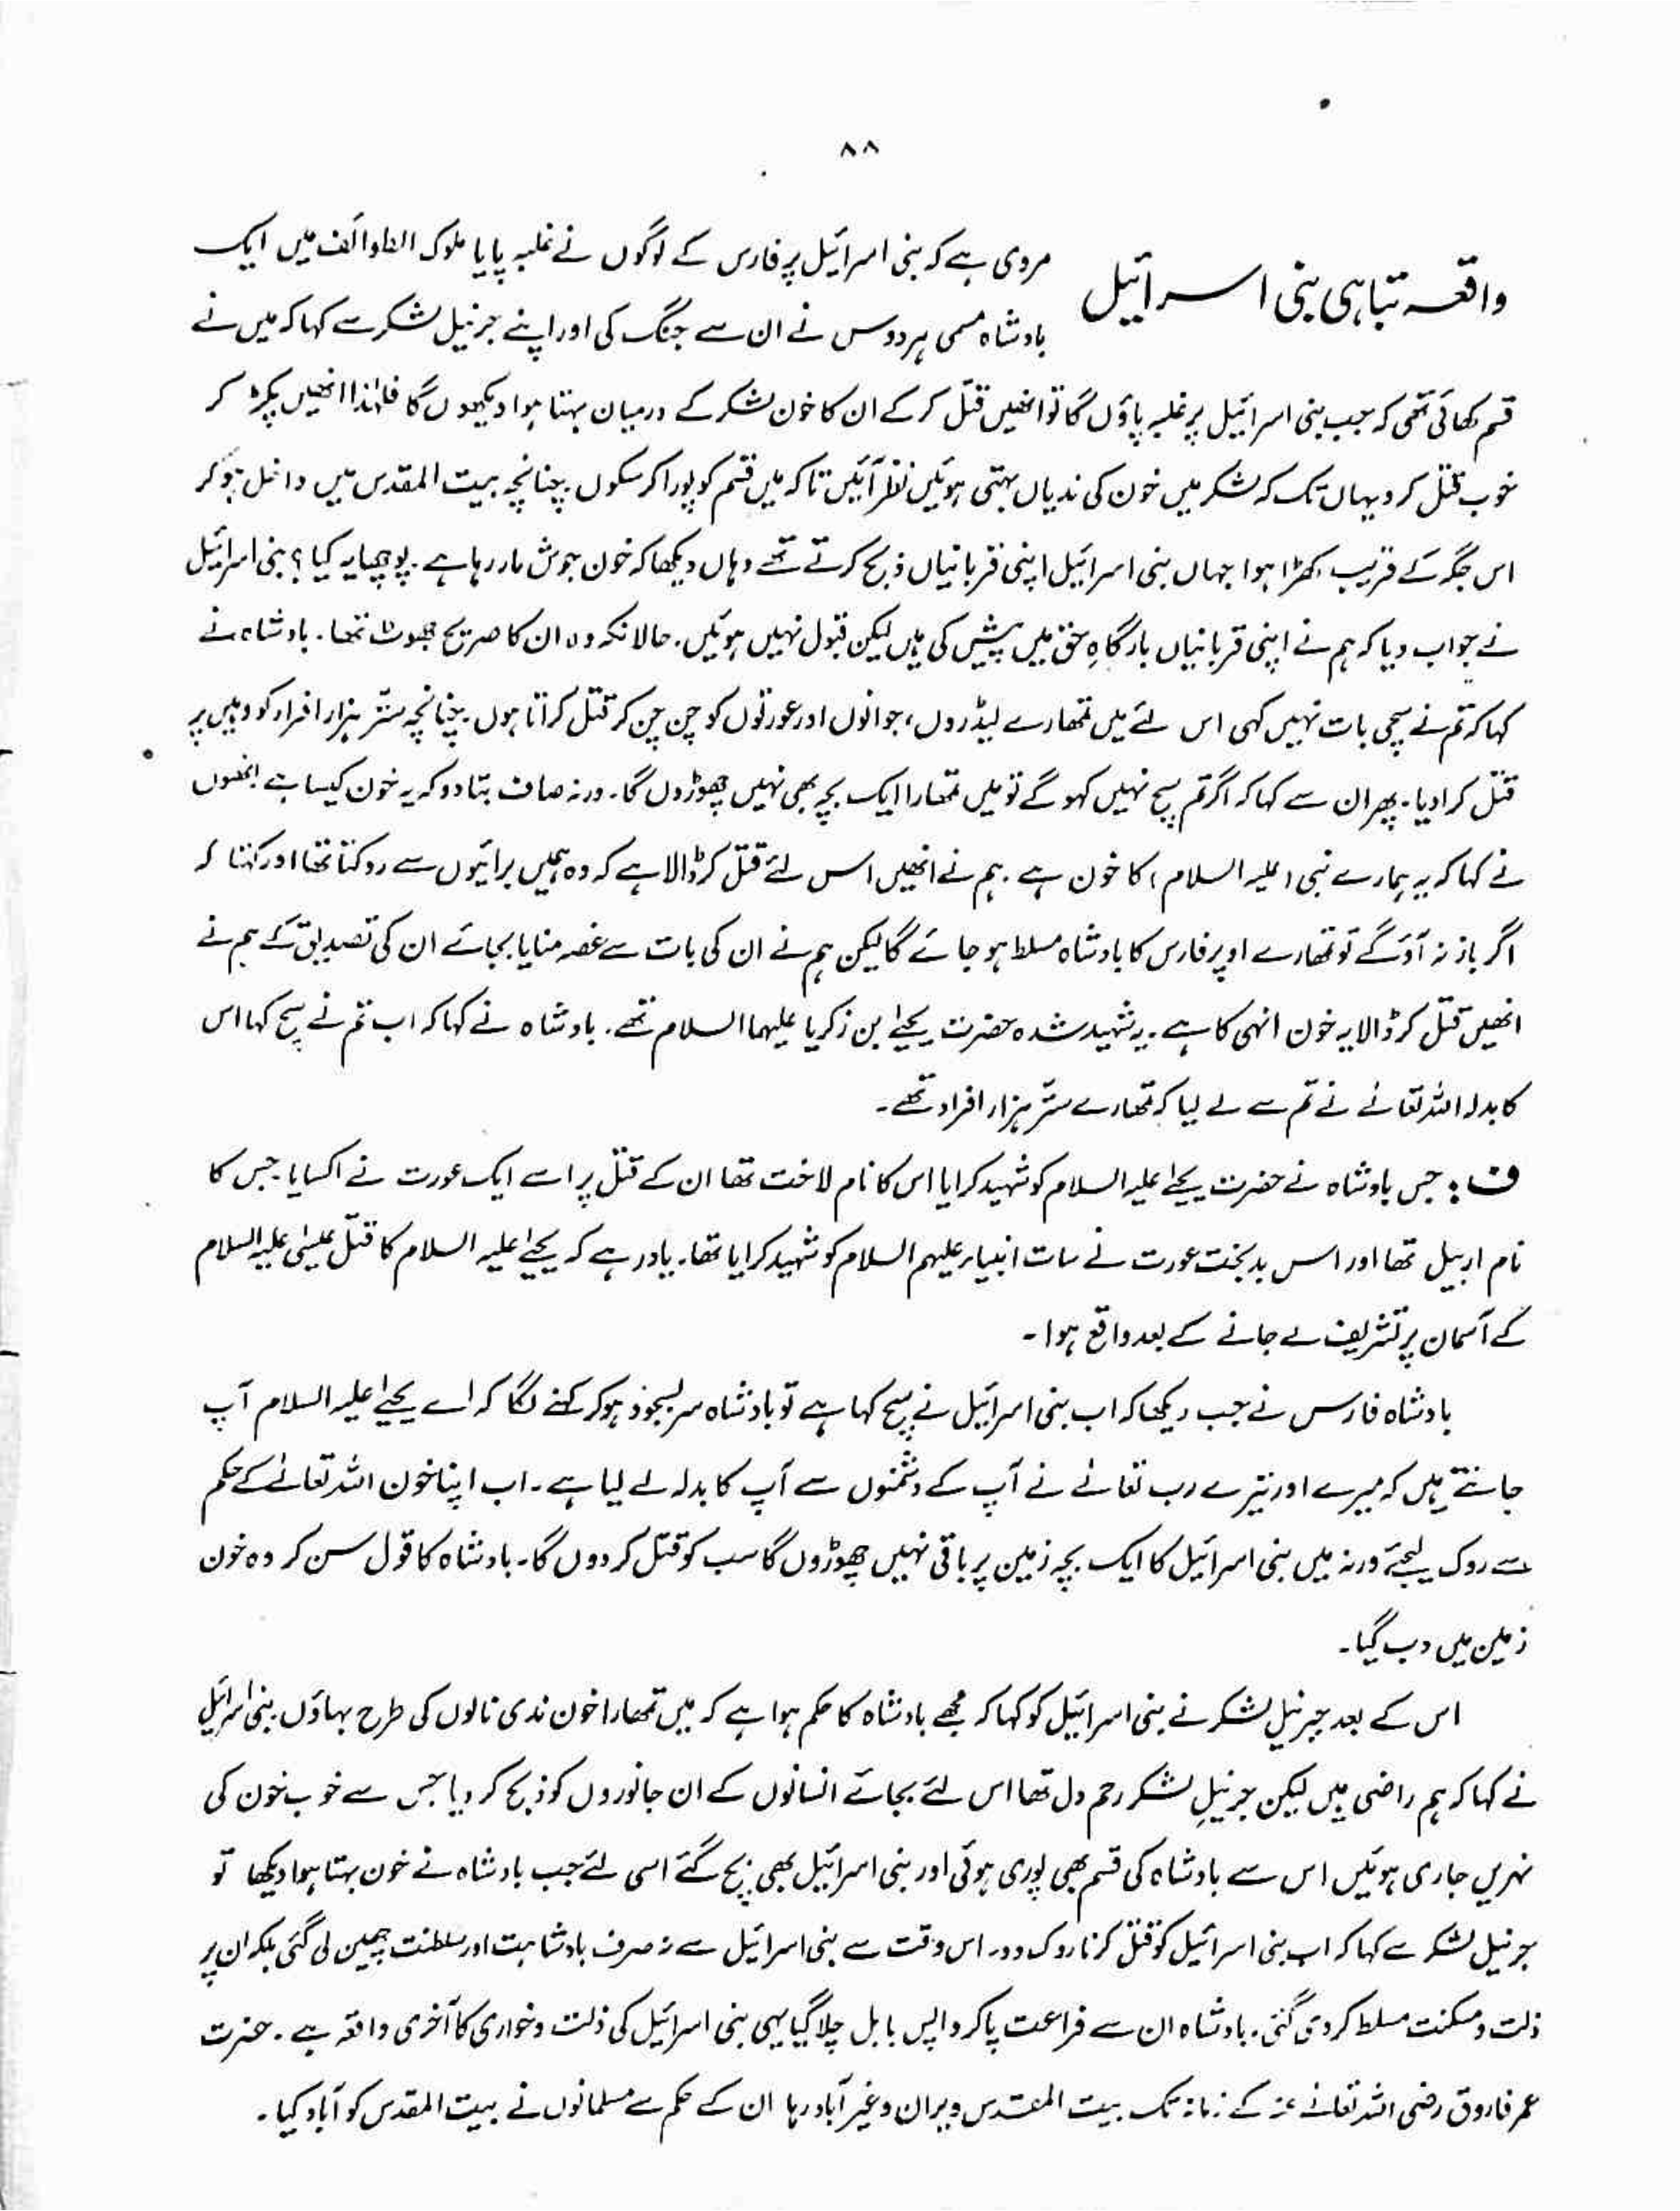 ۸۸
واقعہ تباہی بنی اسرائیل
مروی ہے کہ بنی اسرائیل پر فارس کے لوگوں نے غلبہ پایا ملوک الطوائف میں ایک
بادشاہ مسمی ہردوس نے ان سے جنگ کی اور اپنے جرنیل لشکر سے کہا کہ میں نے
قسم کھائی تھی کہ جب بنی اسرائیل پر غلبہ پاؤں گا تو انھیں قتل کر کے ان کا خون لشکر کے درمیان بہتا ہوا دیکھوں گا فلہٰذا انھیں پکڑ کر
خوب قتل کرو یہاں تک کہ لشکر میں خون کی ندیاں بہتی ہوئیں نظر آئیں تاکہ میں قسم کو پورا کر سکوں چنانچہ بیت المقدس میں داخل ہو کر
اس جگہ کے قریب کھڑا ہوا جہاں بنی اسرائیل اپنی قربانیاں ذبح کرتے تھے وہاں دیکھا کہ خون جوش مار رہا ہے۔ پوچھا یہ کیا؟ بنی اسرائیل
نے جواب دیا کہ ہم نے اپنی قربانیاں بارگاہِ حق میں پیش کی ہیں لیکن قبول نہیں ہوئیں۔ حالانکہ وہ ان کا صریح جھوٹ تھا۔ بادشاہ نے
کہا کہ تم نے سچی بات نہیں کہی اس لئے میں تمھارے لیڈروں، جوانوں اور عورتوں کو چن چن کر قتل کراتا ہوں۔ چنانچہ ستّر ہزار افراد کو وہیں پر
قتل کرا دیا۔ پھر ان سے کہا کہ اگر تم سچ نہیں کہو گے تو میں تمھارا ایک بچہ بھی نہیں چھوڑوں گا۔ ورنہ صاف بتا دو کہ یہ خون کیسا ہے انھوں
نے کہا کہ یہ ہمارے نبی (علیہ السلام) کا خون ہے۔ ہم نے انھیں اس لئے قتل کر ڈالا ہے کہ وہ ہمیں برائیوں سے روکتا تھا اور کہتا کہ
اگر باز نہ آؤ گے تو تمھارے اوپر فارس کا بادشاہ مسلط ہو جائے گا لیکن ہم نے ان کی بات سے غصہ منایا بجائے ان کی تصدیق کے ہم نے
انھیں قتل کر ڈالا یہ خون انہی کا ہے۔ یہ شہید شدہ حضرت یحیٰے بن زکریا علیہما السلام تھے۔ بادشاہ نے کہا کہ اب تم نے سچ کہا اس
کا بدلہ اللہ تعالٰے نے تم سے لے لیا کہ تمھارے ستّر ہزار افراد تھے۔
ف: جس بادشاہ نے حضرت یحیٰے علیہ السلام کو شہید کرایا اس کا نام لاخت تھا ان کے قتل پر اسے ایک عورت نے اکسایا جس کا
نام اربیل تھا اور اس بدبخت عورت نے سات انبیاء علیہم السلام کو شہید کرایا تھا۔ یاد رہے کہ یحیٰے علیہ السلام کا قتل عیسٰی علیہ السلام
کے آسمان پر تشریف لے جانے کے بعد واقع ہوا۔
بادشاہ فارس نے جب دیکھا کہ اب بنی اسرائیل نے سچ کہا ہے تو بادشاہ سربسجود ہو کر کہنے لگا کہ اے یحیٰے علیہ السلام آپ
جانتے ہیں کہ میرے اور تیرے رب تعالٰے نے آپ کے دشمنوں سے آپ کا بدلہ لے لیا ہے۔ اب اپنا خون اللہ تعالٰے کے حکم
سے روک لیجئے ورنہ میں بنی اسرائیل کا ایک بچہ زمین پر باقی نہیں چھوڑوں گا سب کو قتل کر دوں گا۔ بادشاہ کا قول سن کر وہ خون
زمین میں دب گیا۔
اس کے بعد جرنیل لشکر نے بنی اسرائیل کو کہا کہ مجھے بادشاہ کا حکم ہوا ہے کہ میں تمھارا خون ندی نالوں کی طرح بہاؤں بنی اسرائیل
نے کہا کہ ہم راضی ہیں لیکن جرنیلِ لشکر رحم دل تھا اس لئے بجائے انسانوں کے ان جانوروں کو ذبح کر دیا جس سے خوب خون کی
نہریں جاری ہوئیں اس سے بادشاہ کی قسم بھی پوری ہوئی اور بنی اسرائیل بھی بچ گئے اسی لئے جب بادشاہ نے خون بہتا ہوا دیکھا تو
جرنیل لشکر سے کہا کہ اب بنی اسرائیل کو قتل کرنا روک دو۔ اس وقت سے بنی اسرائیل سے نہ صرف بادشاہت اور سلطنت چھین لی گئی بلکہ ان پر
ذلت و مسکنت مسلط کر دی گئی۔ بادشاہ ان سے فراغت پا کر واپس بابل چلا گیا یہی بنی اسرائیل کی ذلت و خواری کا آخری واقعہ ہے۔ حضرت
عمر فاروق رضی اللہ تعالٰے عنہ کے زمانہ تک بیت المقدس ویران و غیر آباد رہا ان کے حکم سے مسلمانوں نے بیت المقدس کو آباد کیا۔